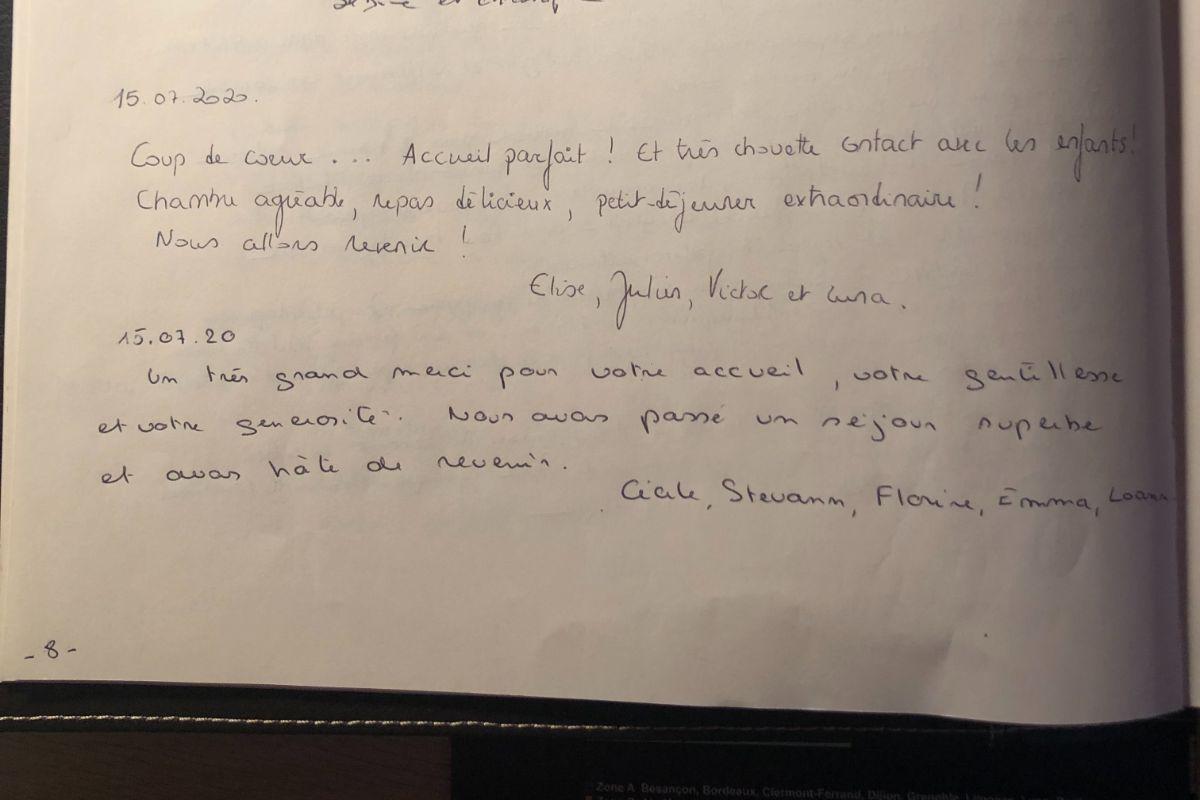 15.07.2020.
Coup de coeur ... Accueil parfait ! Et très chouette contact avec les enfants!
Chambre agréable, repas délicieux, petit-déjeuner extraordinaire !
Nous allons revenir !
Elise, Julien, Victor et Luna.
15.07.20
Un très grand merci pour votre accueil, votre gentillesse
et votre generosité. Nous avons passé un séjour superbe
et avons hâte de revenir.
Cécile, Stevann, Florine, Emma, Loann
- 8 -
Zone A Besançon, Bordeaux, Clermont-Ferrand, Dijon, Grenoble,